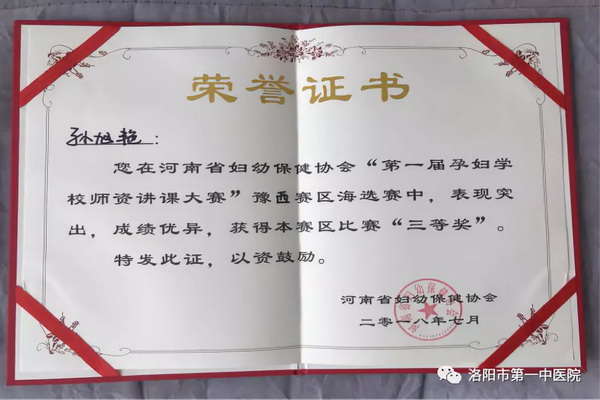 荣誉证书
孙旭艳：
您在河南省妇幼保健协会“第一届孕妇学
校师资讲课大赛”豫西赛区海选赛中，表现突
出，成绩优异，获得本赛区比赛“三等奖”。
特发此证，以资鼓励。
河南省妇幼保健协会
二零一八年七月
河南省妇幼保健协会
洛阳市第一中医院